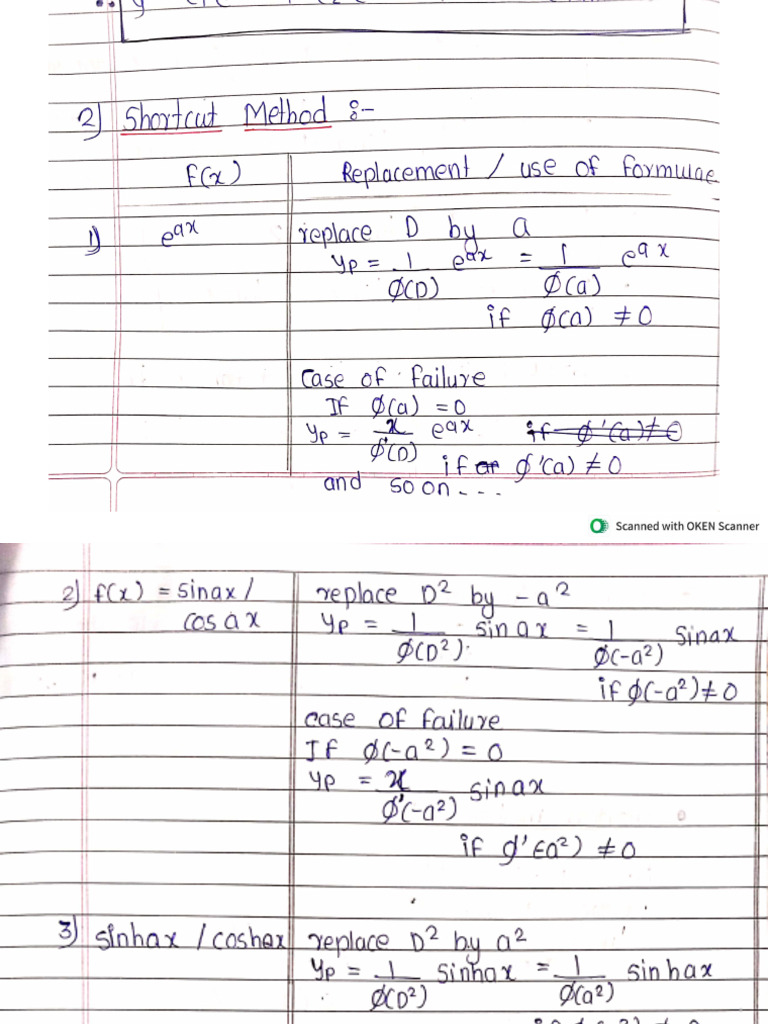 2) Shortcut Method :-
f(x) Replacement / use of formulae
1) e^ax replace D by a
yp = 1/φ(D) e^ax = 1/φ(a) e^ax
if φ(a) ≠ 0
Case of failure
If φ(a) = 0
yp = x/φ'(D) e^ax if φ'(a) ≠ 0
if φ'(a) ≠ 0
and so on ....
Scanned with OKEN Scanner
2) f(x) = sinax / replace D² by -a²
cos ax yp = 1/φ(D²) sin ax = 1/φ(-a²) sinax
if φ(-a²) ≠ 0
case of failure
If φ(-a²) = 0
yp = x/φ'(-a²) sinax
if φ'(-a²) ≠ 0
3) sinhax / coshax replace D² by a²
yp = 1/φ(D²) sinhax = 1/φ(a²) sinhax